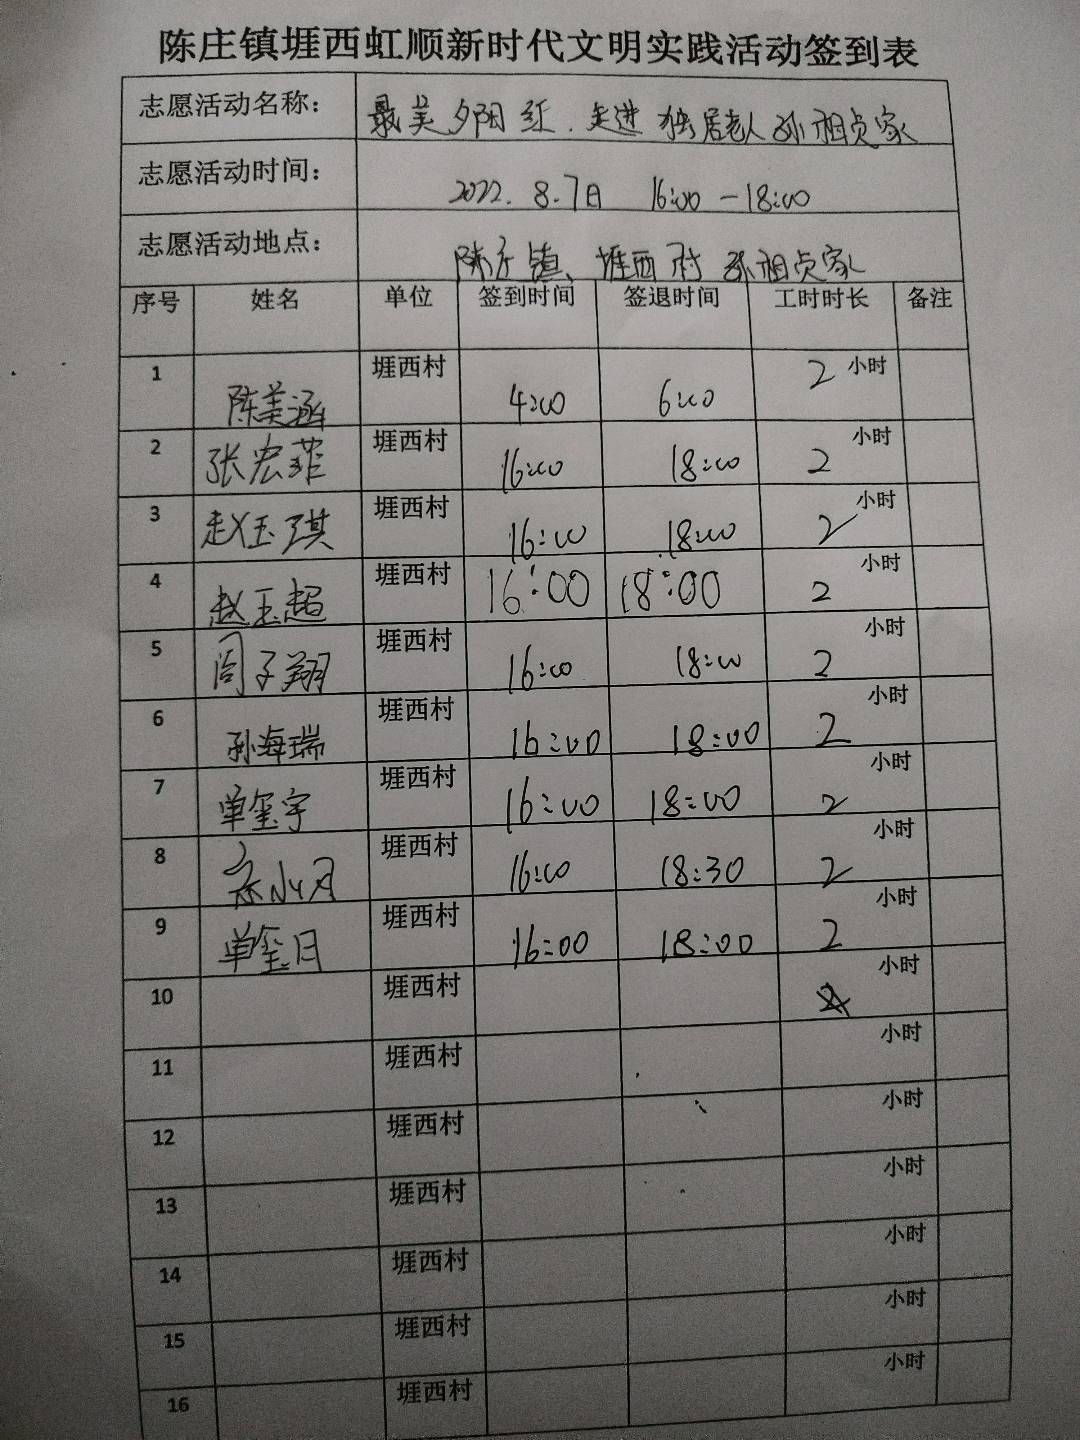 陈庄镇堐西虹顺新时代文明实践活动签到表
志愿活动名称： 最美夕阳红.走进独居老人孙祖贞家
志愿活动时间： 2022.8.7日 16:00-18:00
志愿活动地点： 陈庄镇、堐西村孙祖贞家
序号 姓名 单位 签到时间 签退时间 工时时长 备注
1 陈美涵 堐西村 4:00 6:00 2小时
2 张宏菲 堐西村 16:00 18:00 2小时
3 赵玉琪 堐西村 16:00 18:00 2小时
4 赵玉超 堐西村 16:00 18:00 2小时
5 周子翔 堐西村 16:00 18:00 2小时
6 孙海瑞 堐西村 16:00 18:00 2小时
7 单玺宇 堐西村 16:00 18:00 2小时
8 堐西村 16:00 18:30 2小时
9 单玺日 堐西村 16:00 18:00 2小时
10 堐西村 小时
11 堐西村 小时
12 堐西村 小时
13 堐西村 小时
14 堐西村 小时
15 堐西村 小时
16 堐西村 小时